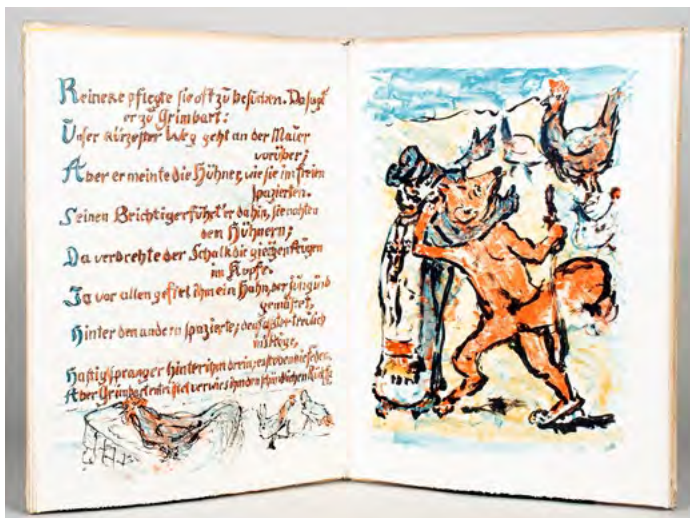 Reineke pflegte sie oft zu besuchen. Da sagt
er zu Grimbart:
Unser kürzester Weg geht an der Mauer
vorüber;
Aber er meinte die Hühner, wie sie im freien
spazierten.
Seinen Beichtiger führt' er dahin, sie nahten
den Hühnern;
Da verdrehte der Schalk die gierigen Augen
im Kopfe.
Ja vor allen gefiel ihm ein Hahn, der jung und
gemästet,
Hinter den andern spazierte; den er treulich
ins Auge,
Hastig sprang er hinter ihm drein; es stoben die Federn.
Aber Grimbart verwies ihm den schändlichen